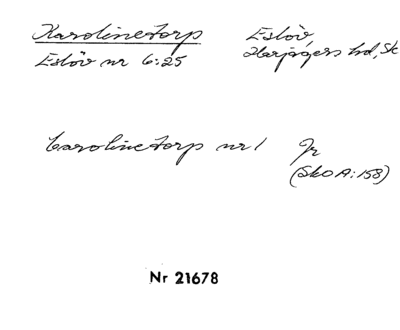 Karolinetorp
Eslöv nr 6:25
Eslöv,
Harjagers hd, Sk
Carolinetorp nr 1
Jr
(SkO A: 158)
Nr 21678